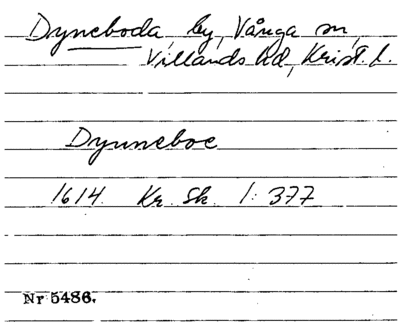 Dyneboda, by, Vånga sn,
Villands hd, Krist. l.
Dynneboe
1614. Kr. Sk. 1: 377
Nr 5486.